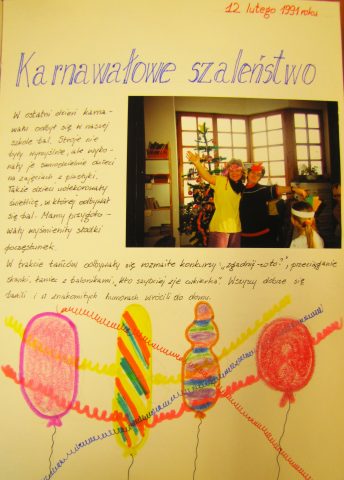 12 lutego 1991 roku
Karnawałowe szaleństwo
W ostatni dzień karna-
wału odbył się w naszej
szkole bal. Stroje nie
były wymyślne, ale wyko-
nały je samodzielnie dzieci
na zajęciach z plastyki.
Także dzieci udekorowały
świetlicę, w której odbywał
się bal. Mamy przygoto-
wały wyśmienity słodki
poczęstunek.
W trakcie tańców odbywały się rozmaite konkursy: „zgaduj-zota?”, przeciąganie
skarki, taniec z balonikami, „kto szybciej zje cukierka”. Wszyscy dobrze się
bawili i w znakomitych humorach wrócili do domu.